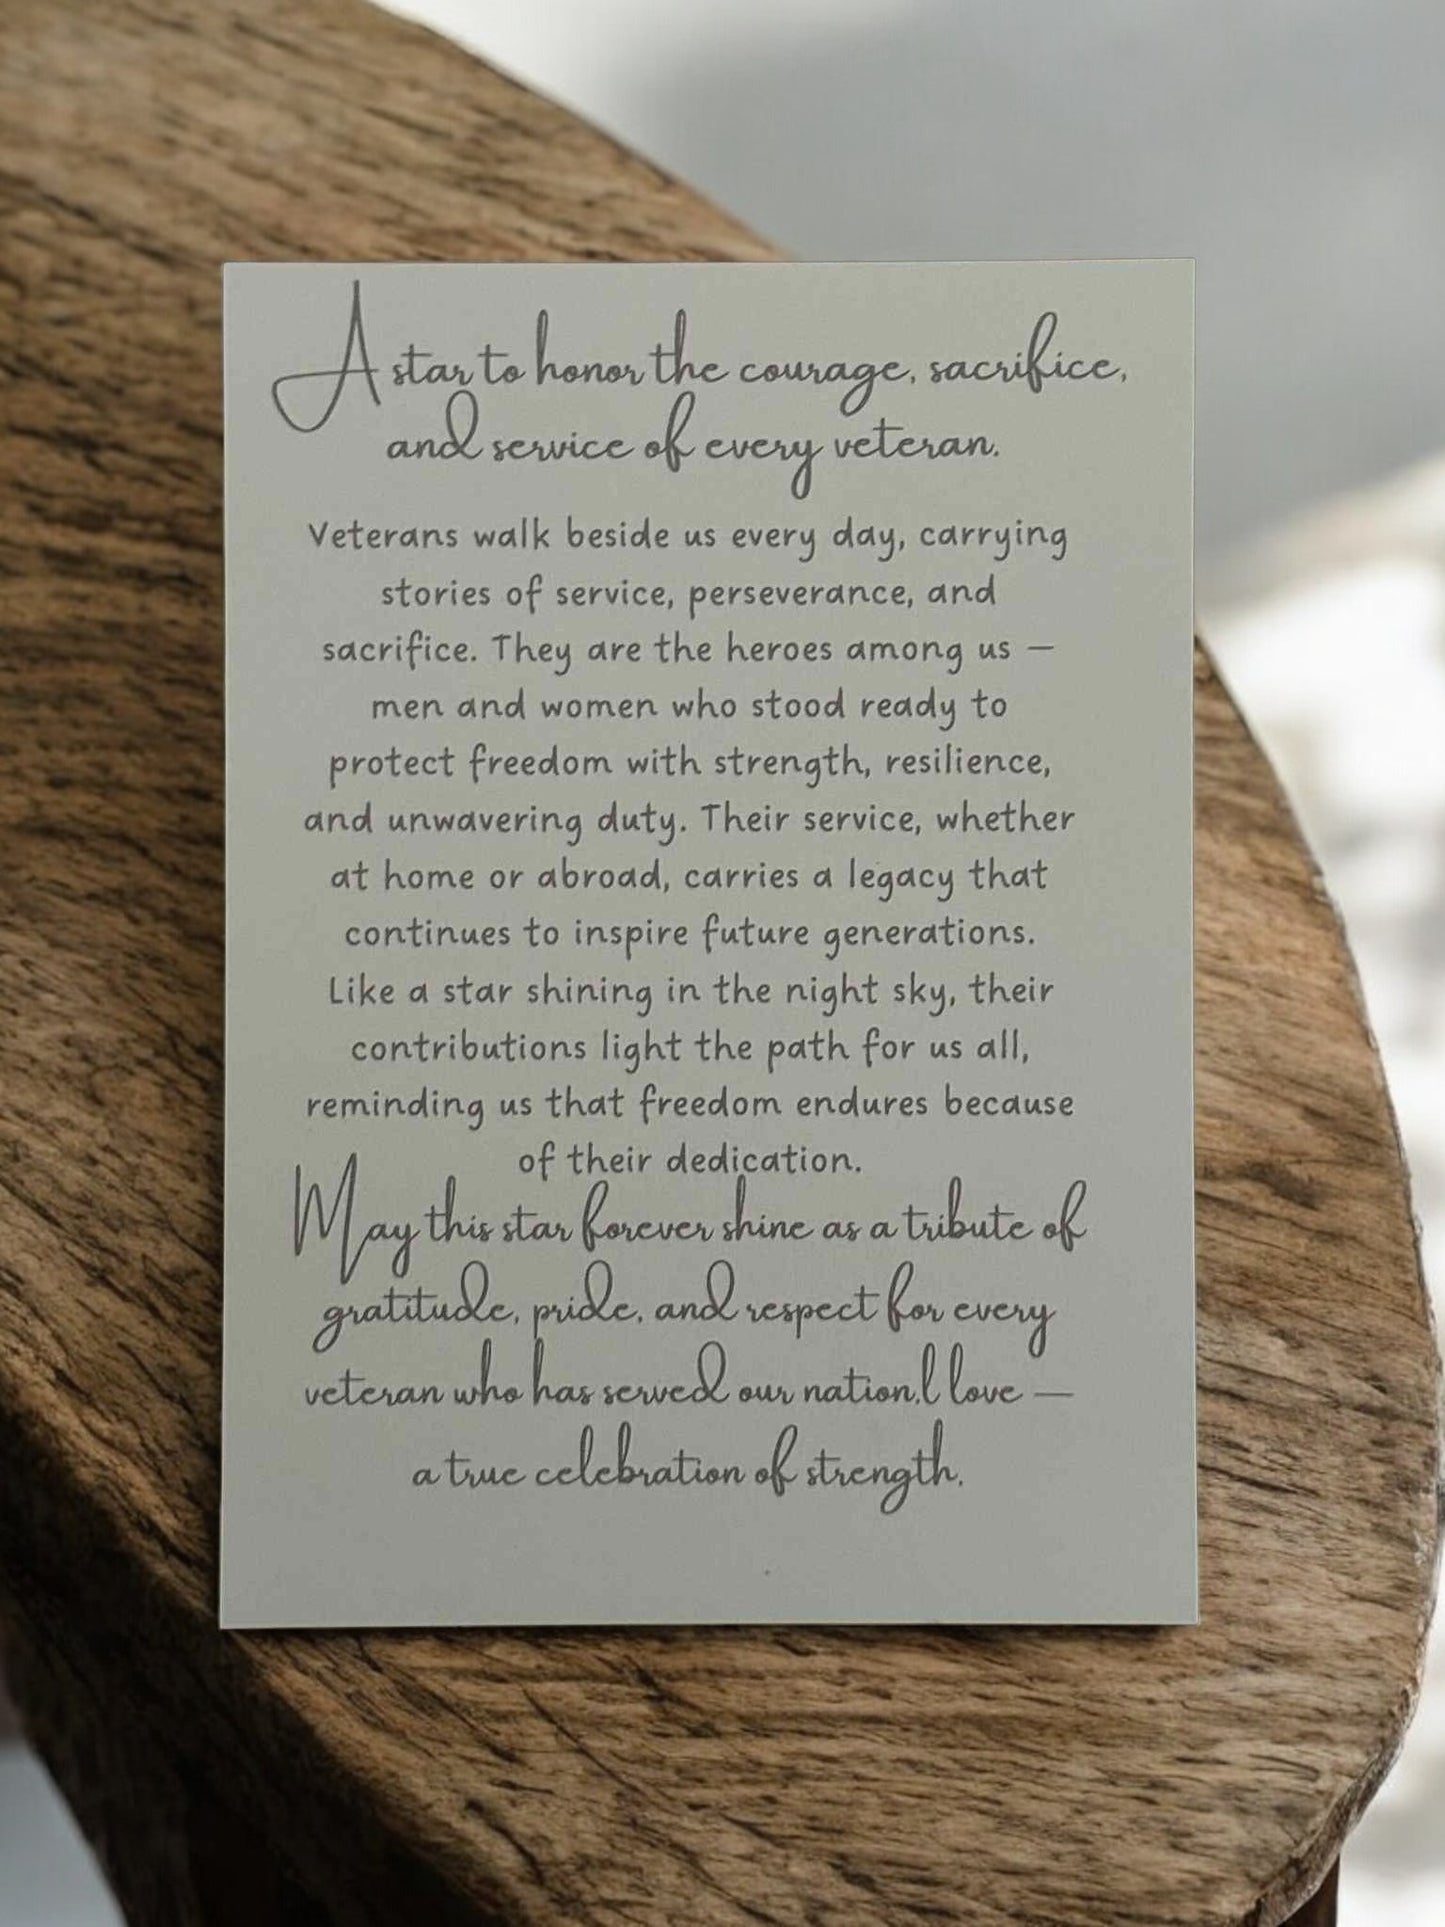 A star to honor the courage, sacrifice,
and service of every veteran.
Veterans walk beside us every day, carrying
stories of service, perseverance, and
sacrifice. They are the heroes among us —
men and women who stood ready to
protect freedom with strength, resilience,
and unwavering duty. Their service, whether
at home or abroad, carries a legacy that
continues to inspire future generations.
Like a star shining in the night sky, their
contributions light the path for us all,
reminding us that freedom endures because
of their dedication.
May this star forever shine as a tribute of
gratitude, pride, and respect for every
veteran who has served our nation.l love —
a true celebration of strength.